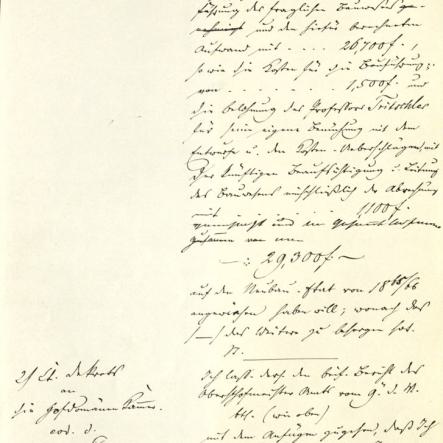 führung des fraglichen Bauwesens ge-
nehmigt und den hiefür berechneten
Aufwand mit . . . . 26,700 f.,
sowie die Kosten für die Bauführung
von . . . . . . . 1,500 f. und
die Belohnung des Professors Tritschler
für seine eigene Bemühung mit dem
Entwurfe u. den Kosten-Ueberschlägen, mit
der künftigen Beaufsichtigung u. Leitung
des Bauwesens einschließlich der Abrechnung
mit . . . 1,100 f.
zusammen von
—: 29,300 f. —
auf den Neubau-Etat von 1865/66
angewiesen haben will; wonach das
/—/ des Weitere zu besorgen hat.
N.
2/ Et. Dekrets
an
die Hofdomänen Kammer.
eod. d.
Ich lasse dem den Bericht des
Obersthofmeister Amts vom 9. d. M.
btr. (wie oben)
mit dem Anfügen zugehen, daß Ich